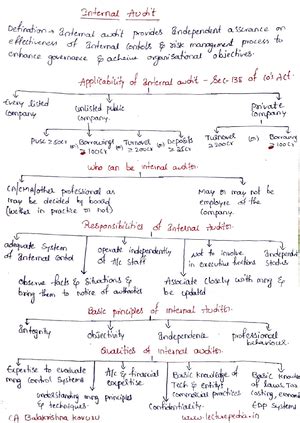 Internal Audit
Definition → Internal audit provides Independent assurance on
effectiveness of Internal Controls & risk management process to
enhance governance & achieve organisational objectives.
Applicability of Internal audit - Sec-138 of co's Act.
Every listed Company
Unlisted public Company
Private Company
PUSC ≥50Cr (or) Borrowings ≥100Cr (or) Turnover ≥200Cr (or) Deposits ≥25Cr
Turnover ≥200Cr (or) Borrowing ≥100Cr
Who can be internal auditor
CA/CMA/other professional as
may be decided by board
(wether in practice or not)
May or may not be
employee of the
Company.
Responsibilities of Internal Auditor
adequate System
of Internal Control
operate independently
of A/c Staff
Not to involve
in executive functions
Independent
Status
Observe facts & Situations &
bring them to notice of
Associate Closely with mng &
be updated
Basic principles of Internal Auditor
Integrity
objectivity
Independence
professional
behaviour
Qualities of Internal auditor
Expertise to evaluate
mng Control Systems
A/c & financial
expertise
Basic Knowledge of
Tech & Entity's
commercial practices
Basic Knowledge
of laws, Tax
costing,
EDP systems
understanding mng principles
& techniques.
Confidentiality.
CA Balakrishna Koruru
www.lecturepedia.in